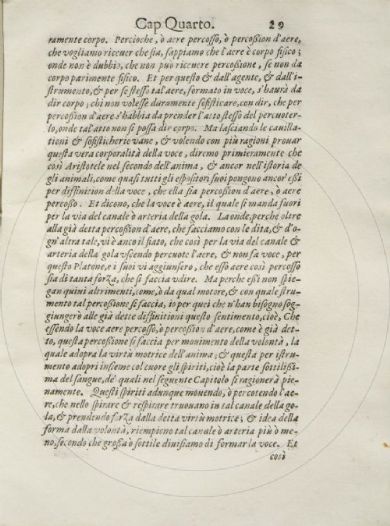 Cap Quarto. 29
ramente corpo. Percioche, ò aere percosso, ò percoßion d'aere,
che vogliamo riceuer che sia, sappiamo che l'aere è corpo fisico;
onde non è dubbio, che non può riceuere percoßione, se non da
corpo parimente fisico. Et per questo & dall'agente, & dall'i-
strumento, & per se stesso tal aere, formato in voce, s'haurà da
dir corpo; chi non volesse duramente sofisticare, con dir, che per
percoßion d'aere s'habbia da prender l'atto stesso del percuoter-
lo, onde tal atto non si possa dir corpo. Ma lasciando le cauilla-
tioni & sofisticherie vane, & volendo con più ragioni prouar
questa vera corporalità della voce, diremo primieramente che
così Aristotele nel secondo dell'anima, & ancor nell'istoria de
gli animali, come quasi tutti gli espositori suoi pongono ancor essi
per diffinition della voce, che ella sia percoßion d'aere, ò aere
percosso. Et dicono, che la voce è aere, il quale si manda fuori
per la via del canale ò arteria della gola. Laonde, perche oltre
alla già detta percoßion d'aere, che facciamo con le dita, & d'o-
gn'altra tale, vi è anco il fiato, che così per la via del canale &
arteria della gola vscendo percuote l'aere, & non fa voce, per
questo Platone, e i suoi vi aggiunsero, che esso aere così percosso
sia di tanta forza, che si faccia vdire. Ma perche essi non spie-
gan quiui altrimenti, come, ò da qual motore, & con quale stru-
mento tal percoßione si faccia, io per quei che n'han bisogno sog-
giungerò alle già dette diffinitioni questo sentimento, cioè, Che
essendo la voce aere percosso, ò percoßion d'aere, come è già det-
to, questa percoßione si faccia per mouimento della volontà, la
quale adopra la virtù motrice dell'anima; & questa per istru-
mento adopri insieme col cuore gli spiriti, cioè la parte sottilißi-
ma del sangue, de' quali nel seguente Capitolo si ragionerà pie-
namente. Questi spiriti adunque mouendo, ò percotendo l'ae-
re, che nello spirare & respirare truouano in tal canale della go-
la, & prendendo forza dalla detta virtù motrice; & idea della
forma dalla volontà, riempieno tal canale ò arteria più ò me-
no, secondo che grossa ò sottile diuisiamo di formar la voce. Et
così